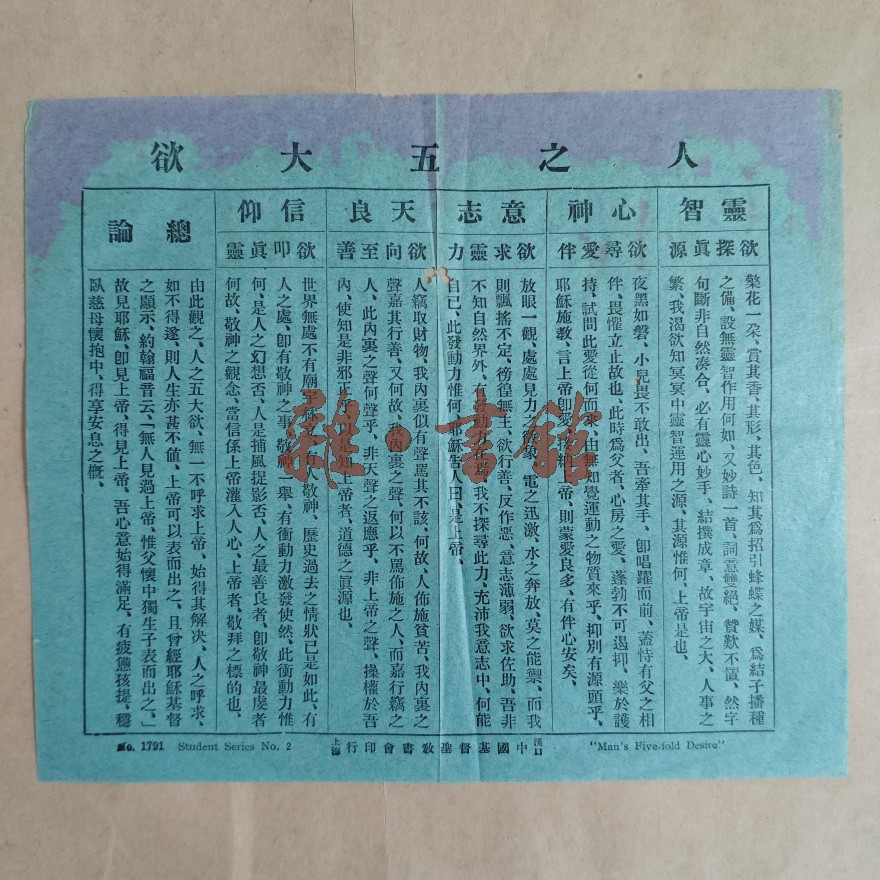 人之五大欲
靈智
欲探眞源
繁花一朶、賞其香、其形、其色、知其爲招引蜂蝶之媒、爲結子播種
之備、設無靈智作用何如、又妙詩一首、詞意雙絕、贊歎不置、然字
句斷非自然湊合、必有靈心妙手、結撰成章、故宇宙之大、人事之
繁、我渴欲知冥冥中靈智運用之源、其源惟何、上帝是也、
心神
欲尋愛伴
夜黑如磐、小兒畏不敢出、吾牽其手、卽唱躍而前、蓋恃有父之相
伴、畏懼立止故也、此時爲父者、心房之愛、蓬勃不可遏抑、樂於護
持、試問此愛從何而來、由無知覺運動之物質來乎、抑別有源頭乎、
耶穌施敎、言上帝卽愛、上帝、則蒙愛良多、有伴心安矣、
意志
欲求靈力
放眼一觀、處處見力之、電之迅激、水之奔放、莫之能禦、而我
則飄搖不定、徬徨無主、欲行善、反作惡、意志薄弱、欲求佐助、吾非
不知自然界外、有發動力在焉、我不探尋此力、充沛我意志中、何能
自己、此發動力惟何、耶穌告人曰、是上帝、
天良
欲向至善
人竊取財物、我內裏似有聲罵其不該、何故、人佈施貧苦、我內裏之
聲嘉其行善、又何故、我內裏之聲、何以不罵佈施之人、而嘉行竊之
人、此內裏之聲何聲乎、非天聲之返應乎、非上帝之聲、操權於吾
內、使知是非邪正乎、是知上帝者、道德之眞源也、
信仰
欲叩眞靈
世界無處不有廟宇、人敬神、歷史過去之情狀已是如此、有
人之處、卽有敬神之事、敬神一舉、有衝動力激發使然、此衝動力惟
何、是人之幻想否、人是捕風捉影否、人之最善良者、卽敬神最虔者
何故、敬神之觀念、當信係上帝灌入人心、上帝者、敬拜之標的也、
總論
由此觀之、人之五大欲、無一不呼求上帝、始得其解決、人之呼求、
如不得遂、則人生亦甚不値、上帝可以表而出之、且曾經耶穌基督
之顯示、約翰福音云、「無人見過上帝、惟父懷中獨生子表而出之、」
故見耶穌、卽見上帝、得見上帝、吾心意始得滿足、有疲憊孩提、穩
臥慈母懷抱中、得享安息之槪、
No. 1791 Student Series No. 2
漢口上海中國基督聖敎書會印行
"Man's Five-fold Desire"
雜·書館